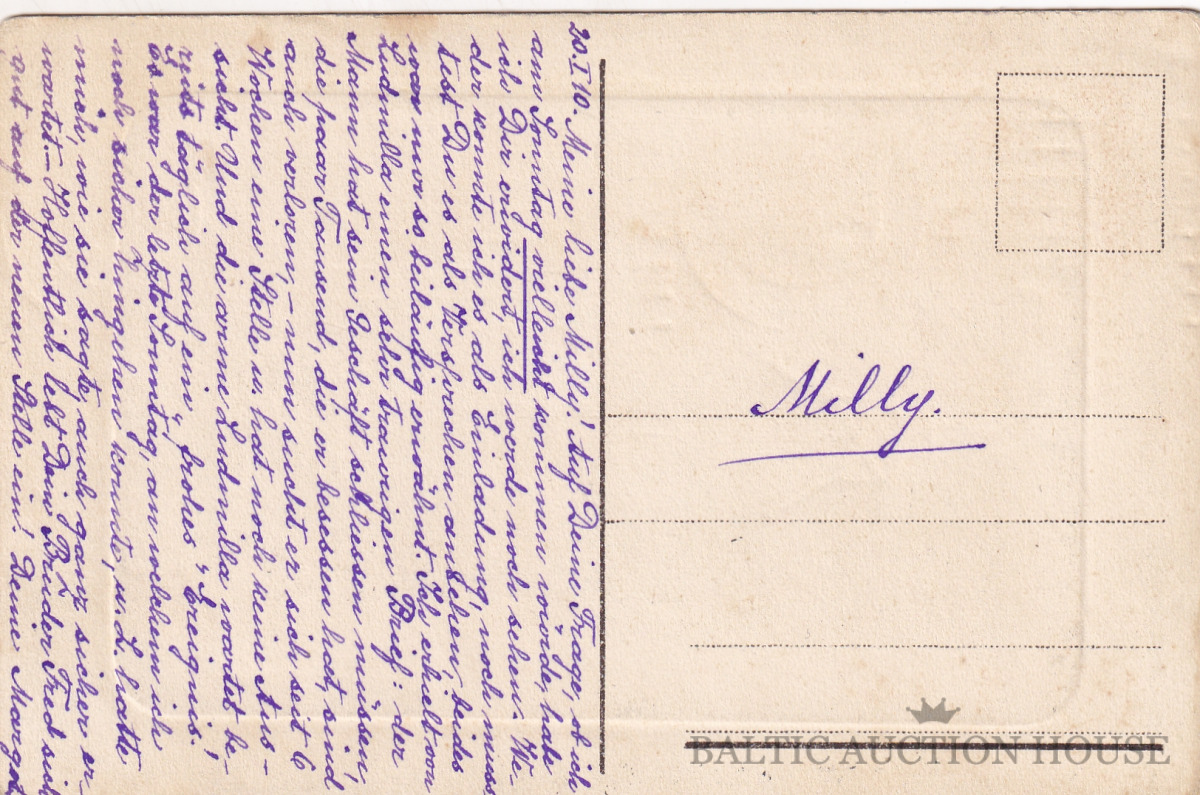 20.I.10. Meine liebe Milly! Auf Deine Frage, ob ich
am Sonntag vielleicht kommen würde, habe
ich Dir erwidert, ich werde noch sehen. We-
der konnte ich es als Einladung, noch muss
test Du es als Versprechen ansehen, beides
war nur so beiläufig erwähnt. Ich erhielt von
Ludmilla einen sehr traurigen Brief: der
Mann hat sein Geschäft schliessen müssen,
die paar Tausend, die er besessen hat, sind
auch verloren, – nun sucht er sich seit 6
Wochen eine Stelle u. hat noch keine Aus-
sicht. Und die arme Ludmilla wartet be-
reits täglich auf ein „frohes“ Ereignis.
Es war der letzte Sonntag, an welchem ich
noch sicher hingehen konnte, u. L. hatte
mich, wie sie sagte, auch ganz sicher er-
wartet. – Hoffentlich lebt Dein Bruder Fred sich
gut auf der neuen Stelle ein! Deine Margot
Milly.
BALTIC AUCTION HOUSE